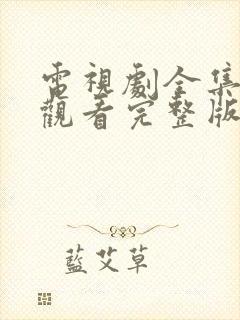 電視劇全集
觀看完整版
藍艾草